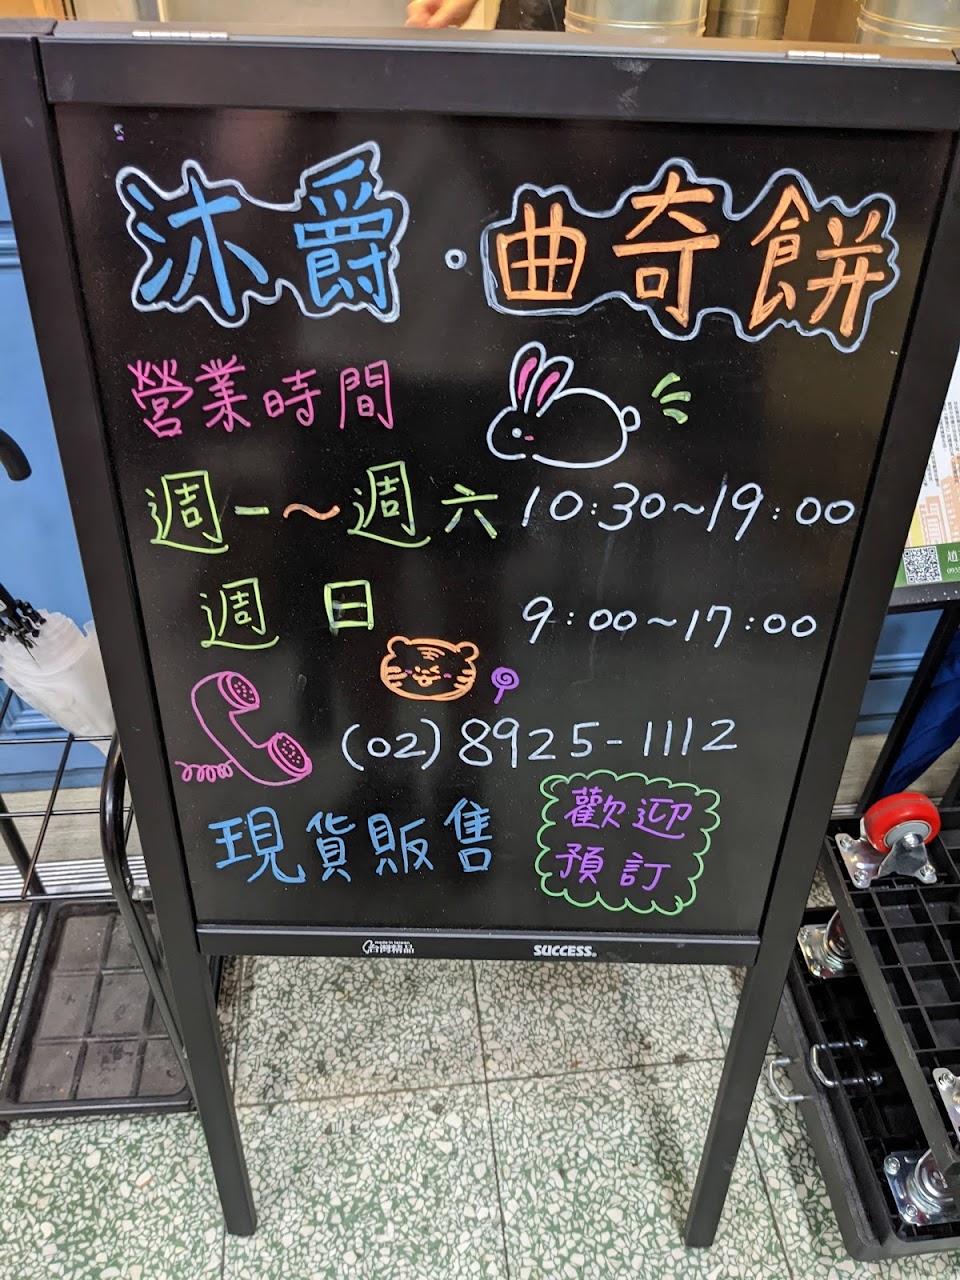 沐爵·曲奇餅
營業時間
週一~週六 10:30~19:00
週日 9:00~17:00
(02)8925-1112
現貨販售
歡迎
預訂
made in taiwan
台灣精品
SUCCESS®